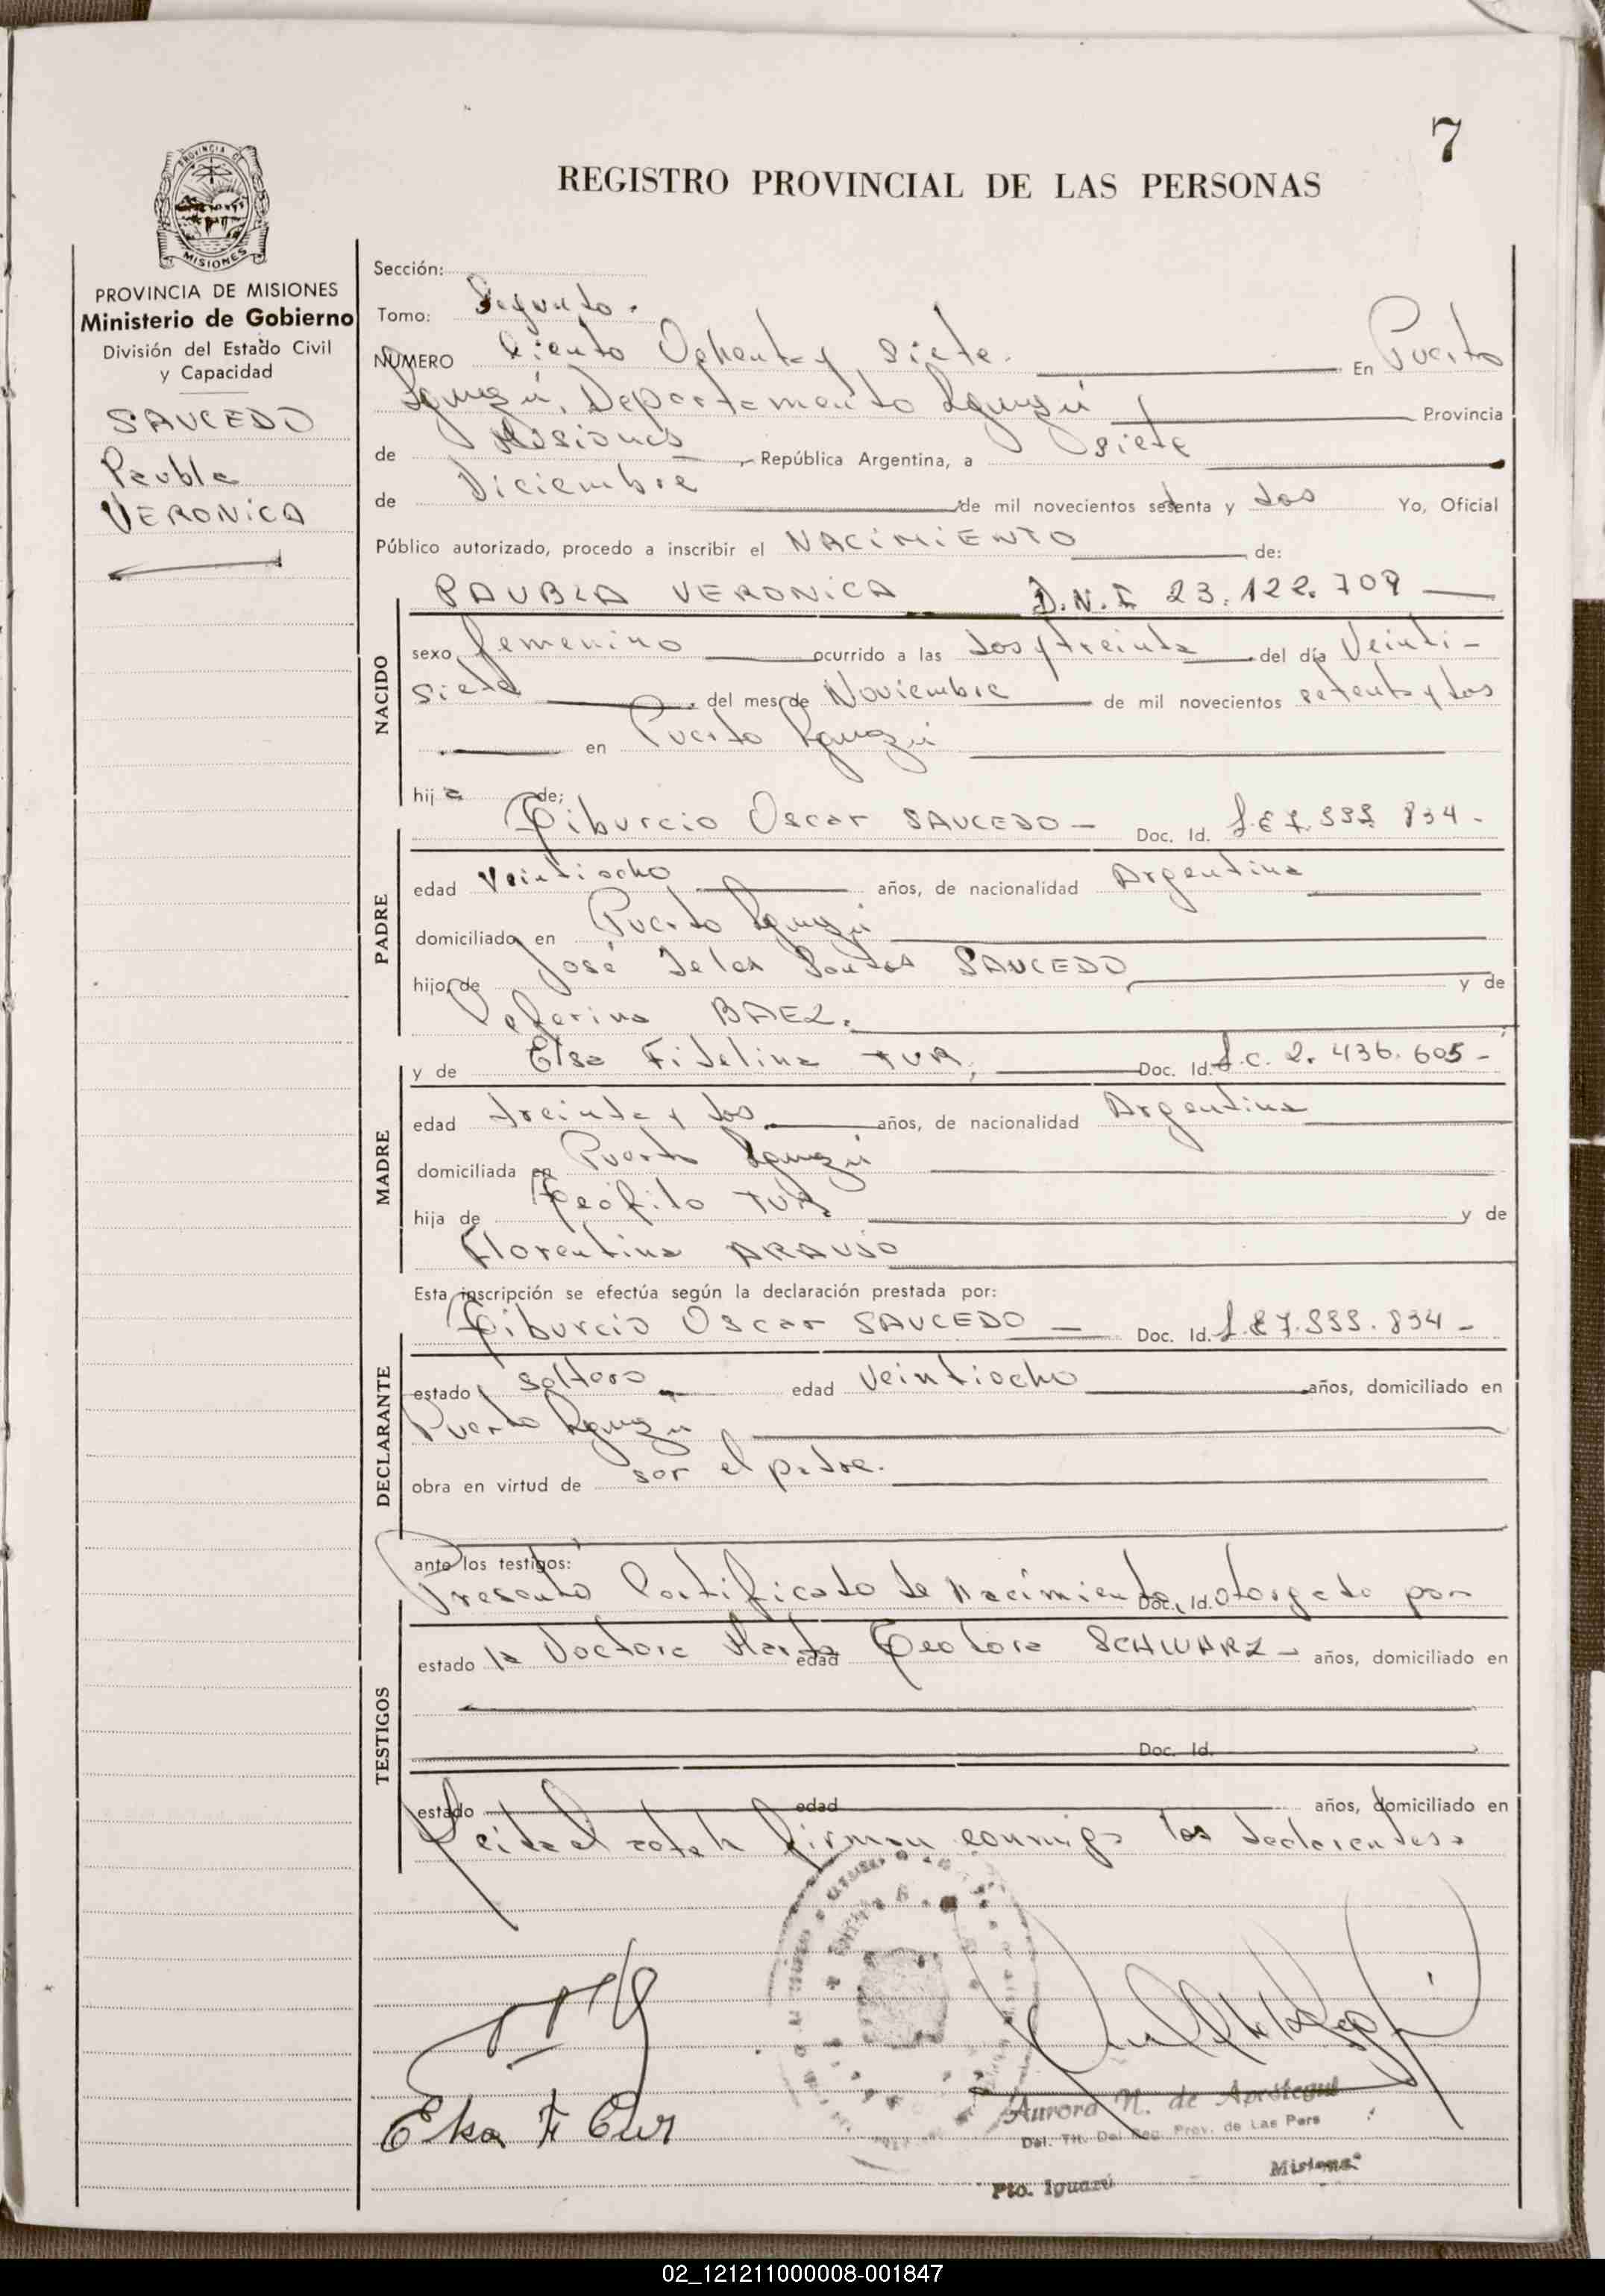 7
REGISTRO PROVINCIAL DE LAS PERSONAS
PROVINCIA DE
MISIONES
PROVINCIA DE MISIONES
Ministerio de Gobierno
División del Estado Civil
y Capacidad
SAUCEDO
Paubla
VERONICA
Sección:
Tomo: Segundo.
NUMERO Ciento Ochenta y siete. En Puerto
Iguazú, Departamento Iguazú Provincia
de Misiones República Argentina, a siete
de Diciembre de mil novecientos setenta y dos Yo, Oficial
Público autorizado, procedo a inscribir el NACIMIENTO de:
PAUBLA VERONICA D.N.I. 23.122.709
NACIDO
sexo femenino ocurrido a las dos y treinta del día Veinti-
siete del mes de Noviembre de mil novecientos setenta y dos
en Puerto Iguazú
hija de;
Tiburcio Oscar SAUCEDO - Doc. Id. 834-
PADRE
edad Veintiocho años, de nacionalidad Argentina
domiciliado en Puerto Iguazú
hijo de José SAUCEDO y de
Ceferina BAEZ.
y de Elsa Fidelina TUR, Doc. Id. L.C. 2.436.605-
MADRE
edad treinta y dos años, de nacionalidad Argentina
domiciliada en Puerto Iguazú
hija de Teófilo TUR y de
Florentina ARAUJO
Esta inscripción se efectúa según la declaración prestada por:
Tiburcio Oscar SAUCEDO - Doc. Id. 834-
DECLARANTE
estado soltero edad Veintiocho años, domiciliado en
Puerto Iguazú
obra en virtud de ser el padre.
ante los testigos:
Presentó Certificado de Nacimiento, Doc. Id. otorgado por
TESTIGOS
estado la Doctora Marta edad Teodora SCHWARZ - años, domiciliado en
Doc. Id.
estado edad años, domiciliado en
Leida el acta la firman conmigo los declarantes.
Elsa F Tur
Aurora N. de Aprótegui
Del. Tit. Del Reg. Prov. de Las Pers
Pto. Iguazú Misiones
02_121211000008-001847